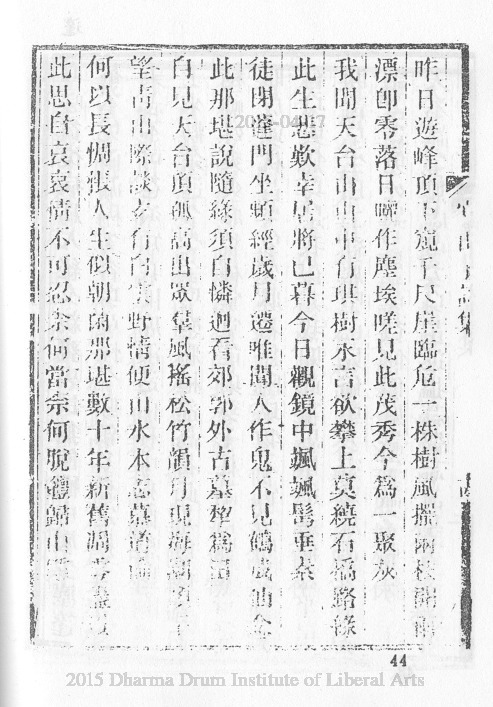 昨日遊峰頂下窺千尺崖臨危一株樹風擺兩枝開雨
漂即零落日曬作塵埃嗟見此茂秀今爲一聚灰
我聞天台山山中有琪樹永言欲攀上莫繞石橋路緣
此生悲歎幸居將已暮今日觀鏡中颯颯鬢垂素
徒閉蓬門坐頻經歲月遷唯聞人作鬼不見鶴成仙念
此那堪說隨緣須自憐迴看郊郭外古墓犂爲田
自見天台頂孤高出眾羣風搖松竹韻月現海潮頻
望青山際談玄有白雲野情便山水本志慕道倫
何以長惆悵人生似朝菌那堪數十年新舊凋零盡
此思自哀哀情不可忍奈何當奈何脫體歸山隱
44
2015 Dharma Drum Institute of Liberal Arts